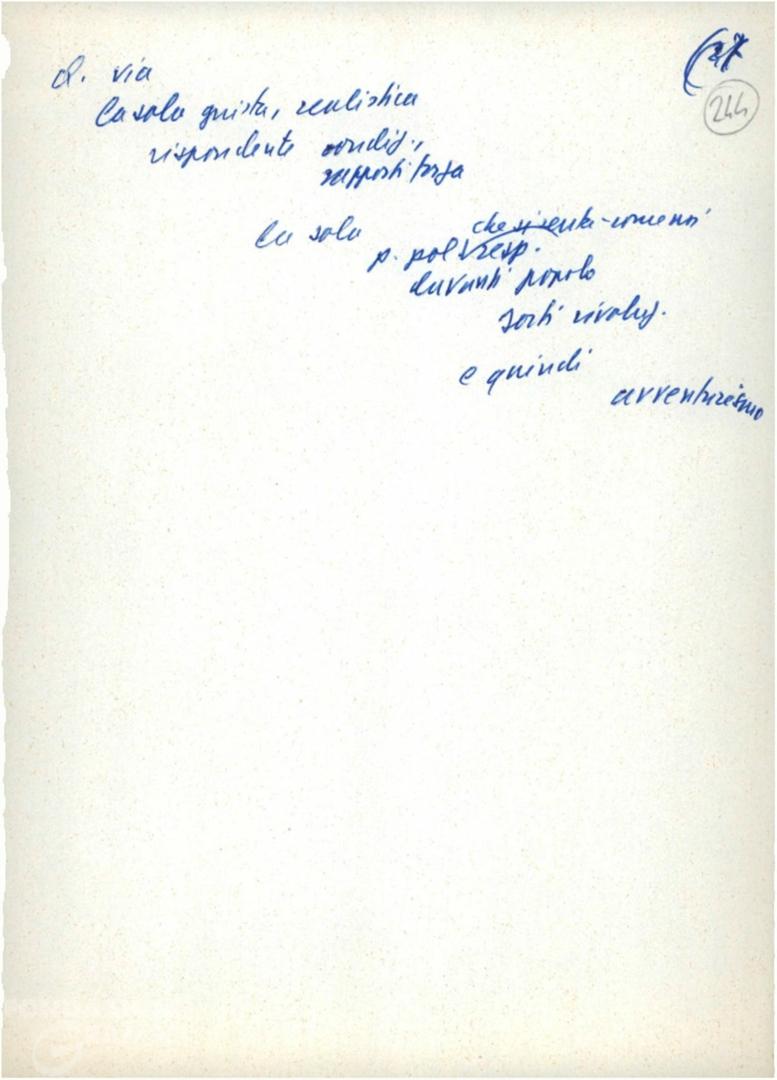 (27
244
d. via
la sola giusta, realistica
rispondente condiz.,
rapporti forza
la sola
che si senta - come noi
p. pol resp.
davanti popolo
sorti rivoluz.
e quindi
avventurismo